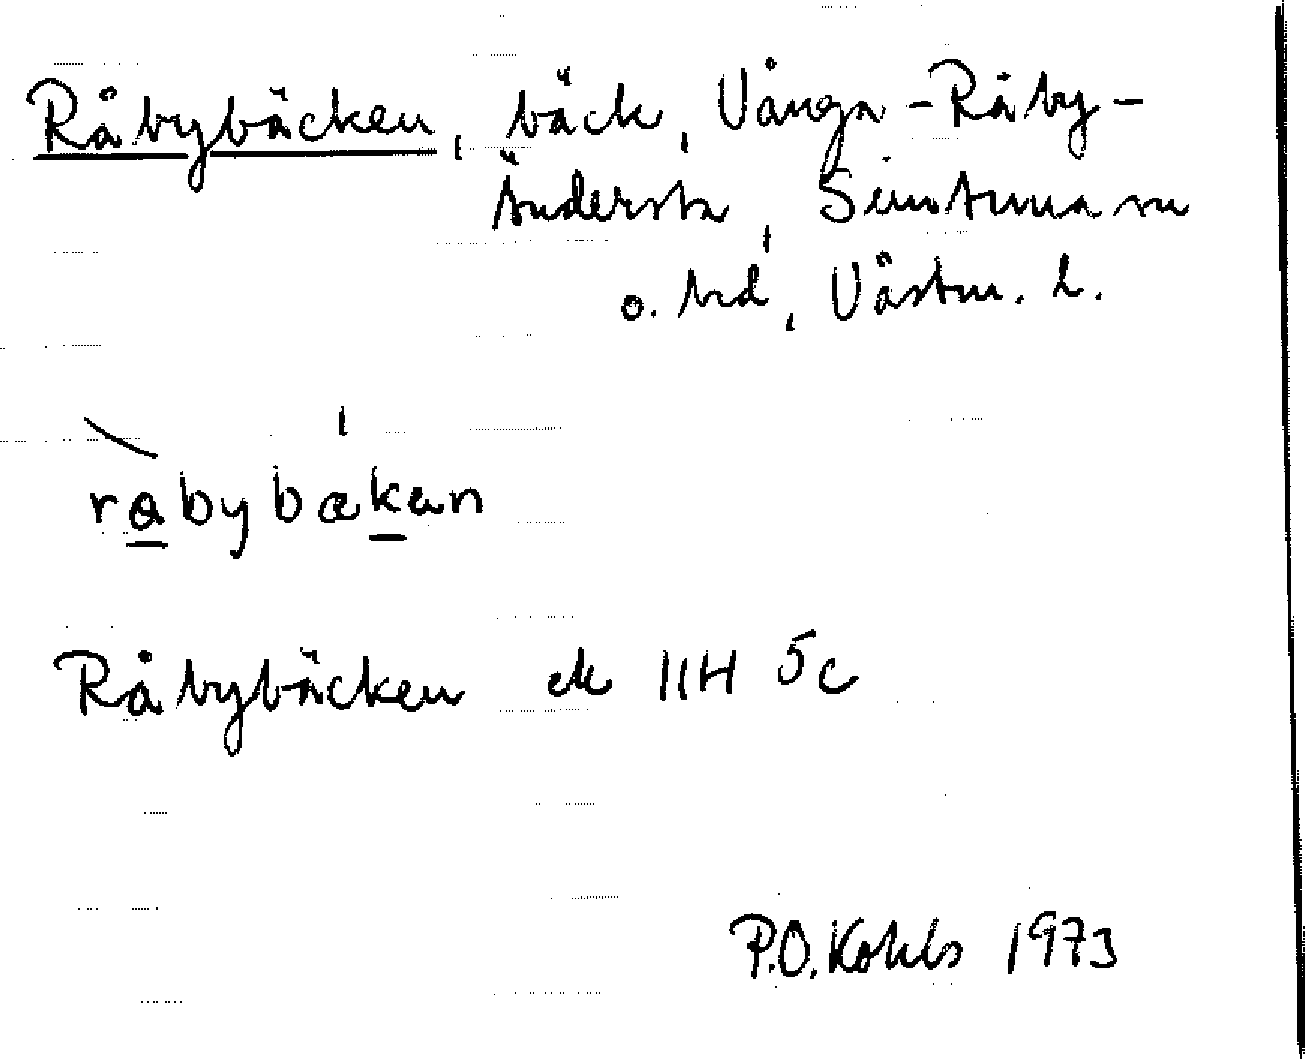 Råbybäcken, bäck, Vånga-Råby-
Ändersta, Simtuna sn
o. hd, Västm. l.
råbybäkän
Råbybäcken ek 11H 5c
P.O. Kohls 1973